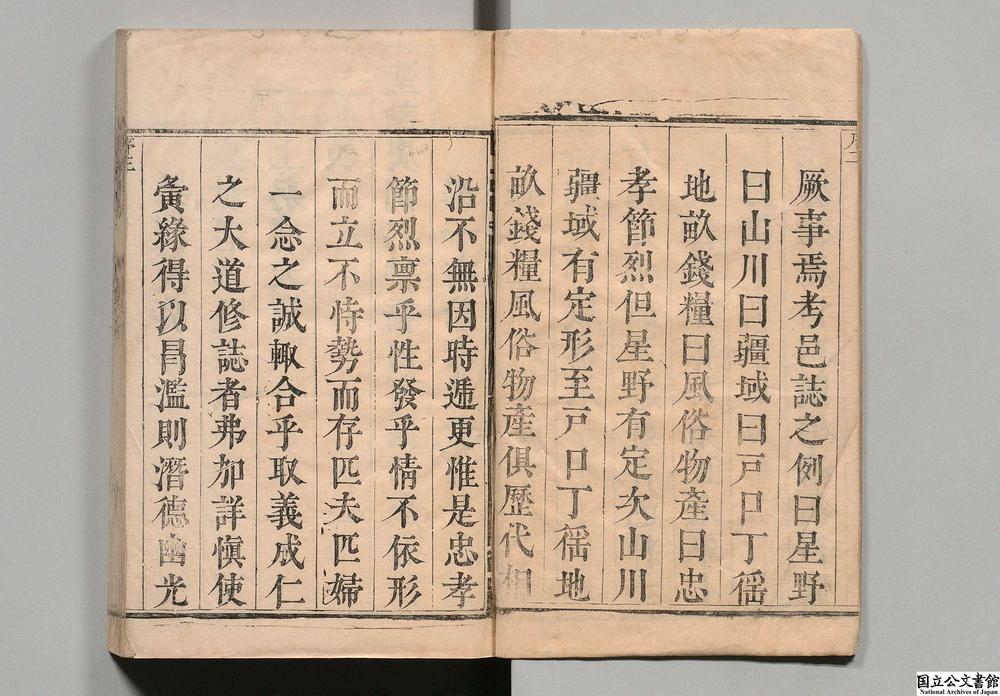 序二
厥事焉考邑誌之例曰星野
曰山川曰疆域曰戸口丁徭
地畝錢糧曰風俗物產曰忠
孝節烈但星野有定次山川
疆域有定形至戸口丁徭地
畝錢糧風俗物產俱歷代相
沿不無因時遞更惟是忠孝
節烈禀乎性發乎情不依形
而立不恃勢而存匹夫匹婦
一念之誠輙合乎取義成仁
之大道修誌者弗加詳愼使
夤緣得以冒濫則潛德幽光
序三
国立公文書館
National Archives of Japan